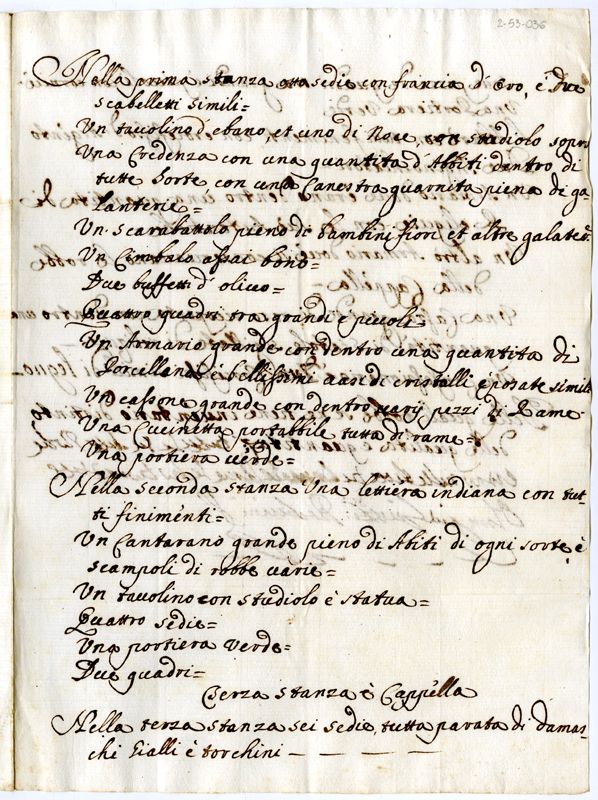 2-53-036
Nella prima stanza otto sedie con francia d'oro, è due
scabelletti simili=
Un tavolino d'ebano et uno di Noce, con studiolo sopra
Una Credenza con una quantita d'Abbiti dentro di
tutte sorte con una Canestra guarnita piena di ga-
lanterie=
Un scarabattolo pieno di bambini fiori et altre
Un Cimbalo assai bono=
Due buffetti d'olivo=
Quattro quadri tra grandi è piccoli
Un Armario grande con dentro una quantita di
Porcellane è bellissimi vasi di cristalli è posate simili
Un cassone grande con dentro varij pezzi di Rame
Una Cucinetta portabbile tutta di rame=
Una portiera verde=
Nella seconda stanza Una lettiera indiana con tut-
ti finimenti=
Un Cantarano grande pieno di Abiti di ogni sorte, è
scampoli di robbe varie=
Un tavolino con studiolo è statua=
Quattro sedie=
Una portiera verde=
Due quadri=
Terza stanza è Cappella
Nella terza stanza sei sedie, tutta parata di damas-
chi Gialli è torchini